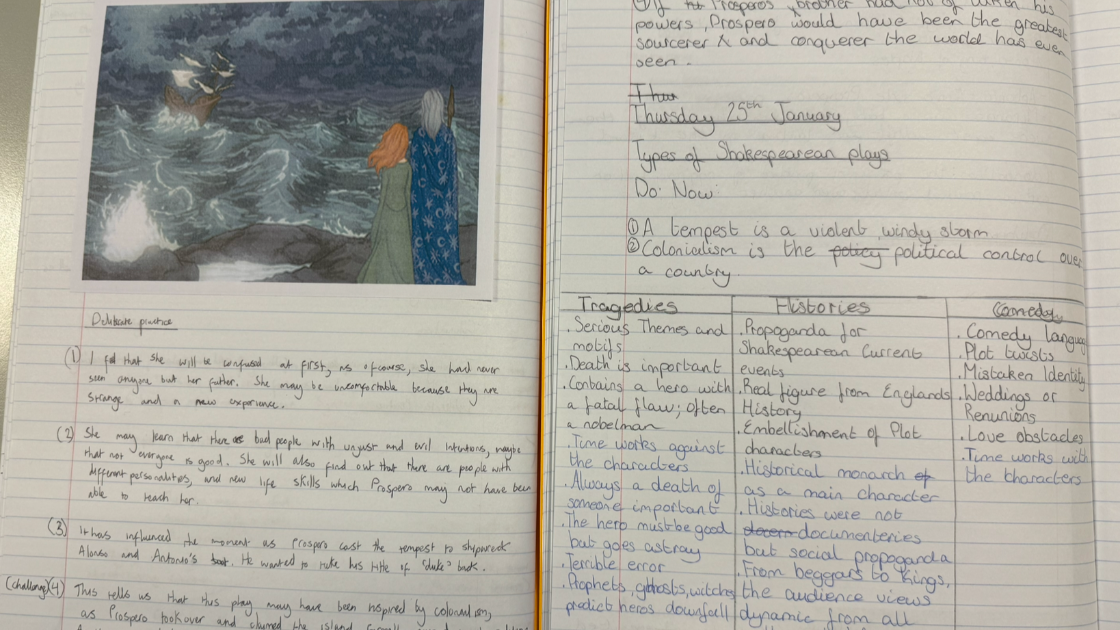 Deliberate practice
(1) I feel that she will be confused at first, as ofcourse, she had never
seen anyone but her father. She may be uncomfortable because they are
strange and a new experience.
(2) She may learn that there are bad people with unjust and evil intentions, maybe
that not everyone is good. She will also find out that there are people with
different personalities, and new life skills which Prospero may not have been
able to teach her.
(3) It has influenced the moment as Prospero cast the tempest to shipwreck
Alonso and Antonio's boat. He wanted to take his title of "duke" back.
(challenge) (4) This tells us that this play may have been inspired by colonialism,
as Prospero tookover and claimed the island
Prosperos brother had not of taken his
powers, Prospero would have been the greatest
sourcerer and conquerer the world has ever
seen.
Thur
Thursday 25th January
Types of Shakespearean plays
Do Now
① A tempest is a violent, windy storm
② Colonialism is the policy political control over
a country
Tragedies
. Serious Themes and
motifs
. Death is important
. Contains a hero with
a fatal flaw; often
a nobelman
. Time works against
the characters
. Always a death of
someone important
. The hero must be good
but goes astray
. Terrible error
. Prophets, ghosts, witches
predict heros downfall
Histories
. Propoganda for
Shakespearean Current
events
. Real figure from Englands
History
. Embellishment of Plot
characters
. Historical monarch of
as a main character
. Histories were not
documenteries
but social propoganda
. From beggars to kings,
the audience views
dynamic from all
Comedy
. Comedy language
. Plot twists
. Mistaken Identity
. Weddings or
Renunions
. Love obstacles
. Time works with
the characters